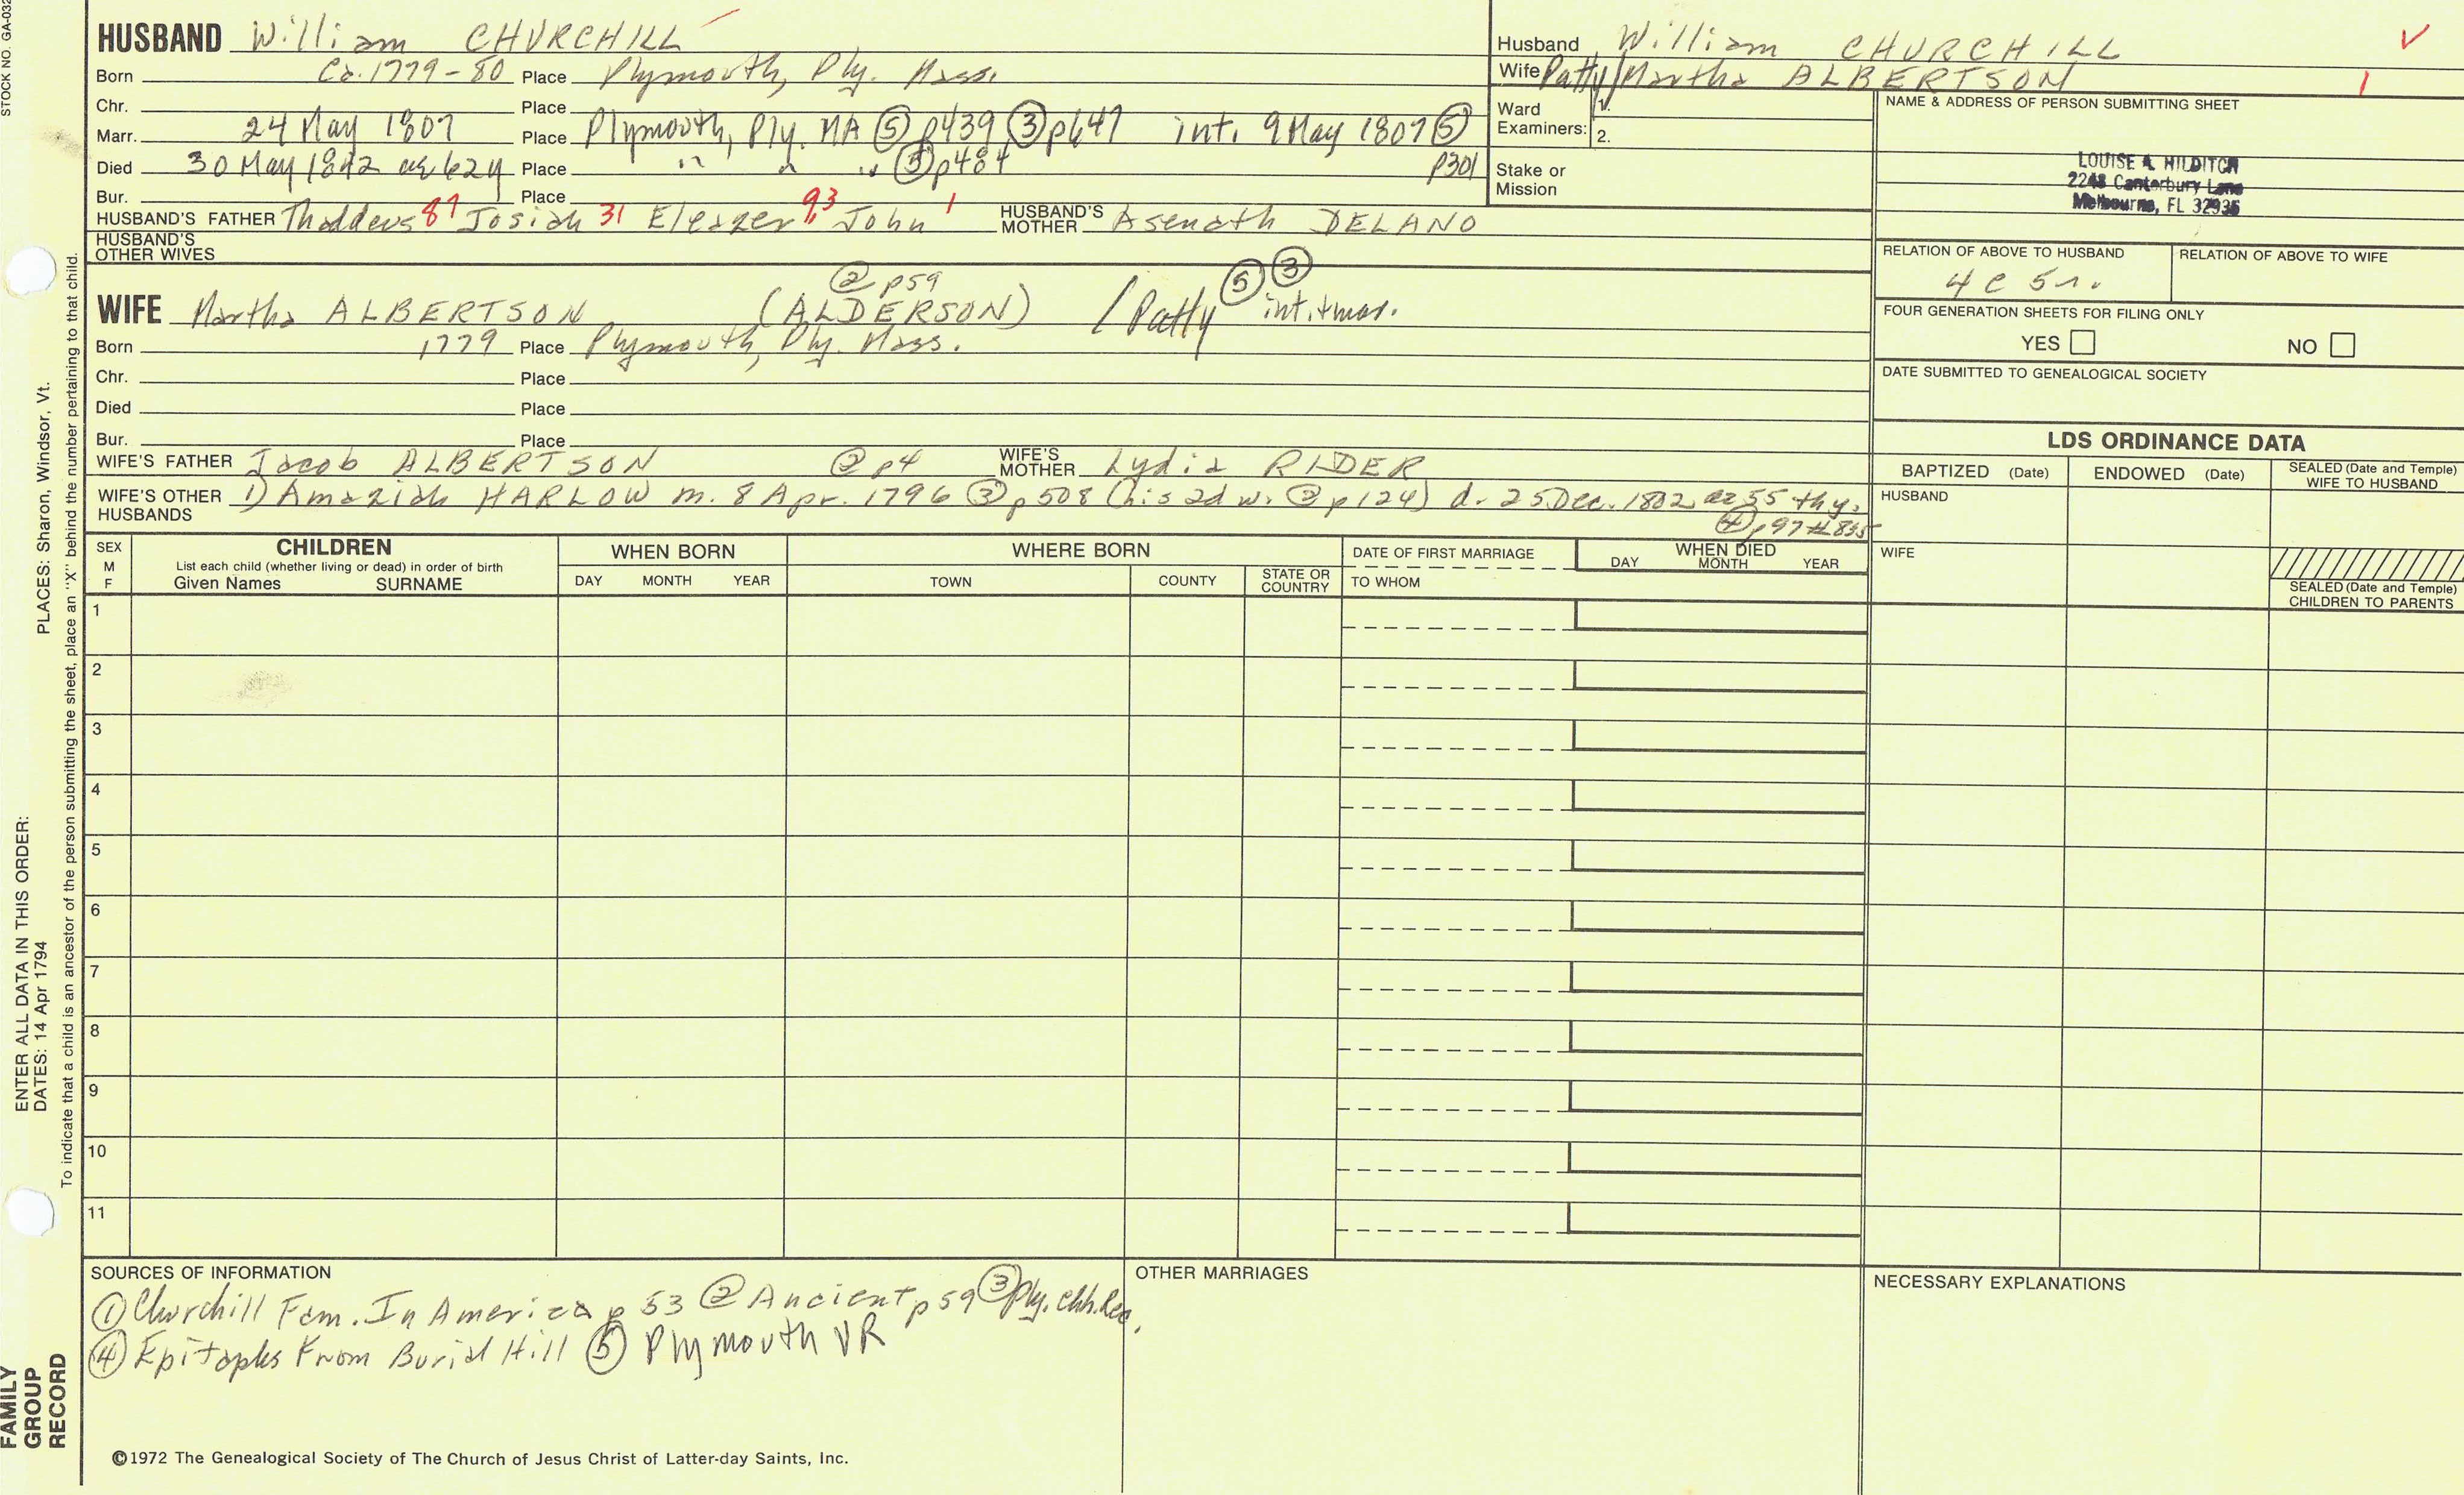 STOCK NO. GA-032
HUSBAND William CHURCHILL
Born Ca. 1779-80 Place Plymouth, Ply. Mass.
Chr. Place
Marr. 24 May 1807 Place Plymouth, Ply. MA ⑤ p439 ③ p647 int. 9 May 1807 ⑤ p301
Died 30 May 1842 ae 62y Place " " " ⑤ p484
Bur. Place
HUSBAND'S FATHER Thaddeus 87 Josiah 31 Eleazer 93 John 1 HUSBAND'S MOTHER Asenath DELANO
HUSBAND'S OTHER WIVES
② p59
WIFE Martha ALBERTSON (ALDERSON) / Patty ⑤ ③ int.+mar.
Born 1779 Place Plymouth, Ply. Mass.
Chr. Place
Died Place
Bur. Place
WIFE'S FATHER Jacob ALBERTSON ② p4 WIFE'S MOTHER Lydia RIDER
WIFE'S OTHER HUSBANDS 1) Amaziah HARLOW m. 8 Apr. 1796 ③ p508 (his 2d w. ② p124) d. 25 Dec. 1802 ae 55 thy.
④ p97 #835
Husband William CHURCHILL V
Wife Patty/Martha ALBERTSON 1
Ward Examiners: 1.
2.
Stake or Mission
NAME & ADDRESS OF PERSON SUBMITTING SHEET
LOUISE A. HILDITCH
2248 Canterbury Lane
Melbourne, FL 32935
RELATION OF ABOVE TO HUSBAND RELATION OF ABOVE TO WIFE
4 C 5 r.
FOUR GENERATION SHEETS FOR FILING ONLY
YES NO
DATE SUBMITTED TO GENEALOGICAL SOCIETY
LDS ORDINANCE DATA
BAPTIZED (Date) ENDOWED (Date) SEALED (Date and Temple) WIFE TO HUSBAND
HUSBAND
WIFE
SEALED (Date and Temple) CHILDREN TO PARENTS
SEX M F
CHILDREN
List each child (whether living or dead) in order of birth
Given Names SURNAME
WHEN BORN
DAY MONTH YEAR
WHERE BORN
TOWN COUNTY STATE OR COUNTRY
DATE OF FIRST MARRIAGE
TO WHOM
WHEN DIED
DAY MONTH YEAR
1
2
3
4
5
6
7
8
9
10
11
SOURCES OF INFORMATION
① Churchill Fam. In America p 53 ② Ancient p59 ③ Ply. Chh. Rec.
④ Epitaphs From Burial Hill ⑤ Plymouth VR
OTHER MARRIAGES
NECESSARY EXPLANATIONS
©1972 The Genealogical Society of The Church of Jesus Christ of Latter-day Saints, Inc.
ENTER ALL DATA IN THIS ORDER:
DATES: 14 Apr 1794 PLACES: Sharon, Windsor, Vt.
To indicate that a child is an ancestor of the person submitting the sheet, place an "X" behind the number pertaining to that child.
FAMILY
GROUP
RECORD